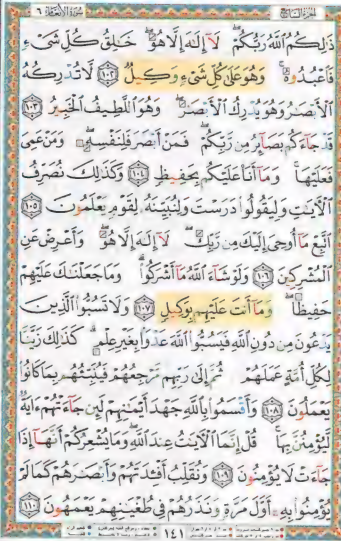 الجزء السابع سورة الأنعام ٦
ذَٰلِكُمُ اللَّهُ رَبُّكُمْ ۖ لَا إِلَٰهَ إِلَّا هُوَ ۖ خَالِقُ كُلِّ شَيْءٍ
فَاعْبُدُوهُ ۚ وَهُوَ عَلَىٰ كُلِّ شَيْءٍ وَكِيلٌ ١٠٢ لَا تُدْرِكُهُ
الْأَبْصَارُ وَهُوَ يُدْرِكُ الْأَبْصَارَ ۖ وَهُوَ اللَّطِيفُ الْخَبِيرُ ١٠٣
قَدْ جَاءَكُمْ بَصَائِرُ مِنْ رَبِّكُمْ ۖ فَمَنْ أَبْصَرَ فَلِنَفْسِهِ ۖ وَمَنْ عَمِيَ
فَعَلَيْهَا ۚ وَمَا أَنَا عَلَيْكُمْ بِحَفِيظٍ ١٠٤ وَكَذَٰلِكَ نُصَرِّفُ
الْآيَاتِ وَلِيَقُولُوا دَرَسْتَ وَلِنُبَيِّنَهُ لِقَوْمٍ يَعْلَمُونَ ١٠٥
اتَّبِعْ مَا أُوحِيَ إِلَيْكَ مِنْ رَبِّكَ ۖ لَا إِلَٰهَ إِلَّا هُوَ ۖ وَأَعْرِضْ عَنِ
الْمُشْرِكِينَ ١٠٦ وَلَوْ شَاءَ اللَّهُ مَا أَشْرَكُوا ۗ وَمَا جَعَلْنَاكَ عَلَيْهِمْ
حَفِيظًا ۖ وَمَا أَنْتَ عَلَيْهِمْ بِوَكِيلٍ ١٠٧ وَلَا تَسُبُّوا الَّذِينَ
يَدْعُونَ مِنْ دُونِ اللَّهِ فَيَسُبُّوا اللَّهَ عَدْوًا بِغَيْرِ عِلْمٍ ۗ كَذَٰلِكَ زَيَّنَّا
لِكُلِّ أُمَّةٍ عَمَلَهُمْ ثُمَّ إِلَىٰ رَبِّهِمْ مَرْجِعُهُمْ فَيُنَبِّئُهُمْ بِمَا كَانُوا
يَعْمَلُونَ ١٠٨ وَأَقْسَمُوا بِاللَّهِ جَهْدَ أَيْمَانِهِمْ لَئِنْ جَاءَتْهُمْ آيَةٌ
لَيُؤْمِنُنَّ بِهَا ۚ قُلْ إِنَّمَا الْآيَاتُ عِنْدَ اللَّهِ ۖ وَمَا يُشْعِرُكُمْ أَنَّهَا إِذَا
جَاءَتْ لَا يُؤْمِنُونَ ١٠٩ وَنُقَلِّبُ أَفْئِدَتَهُمْ وَأَبْصَارَهُمْ كَمَا لَمْ
يُؤْمِنُوا بِهِ أَوَّلَ مَرَّةٍ وَنَذَرُهُمْ فِي طُغْيَانِهِمْ يَعْمَهُونَ ١١٠
١٤١